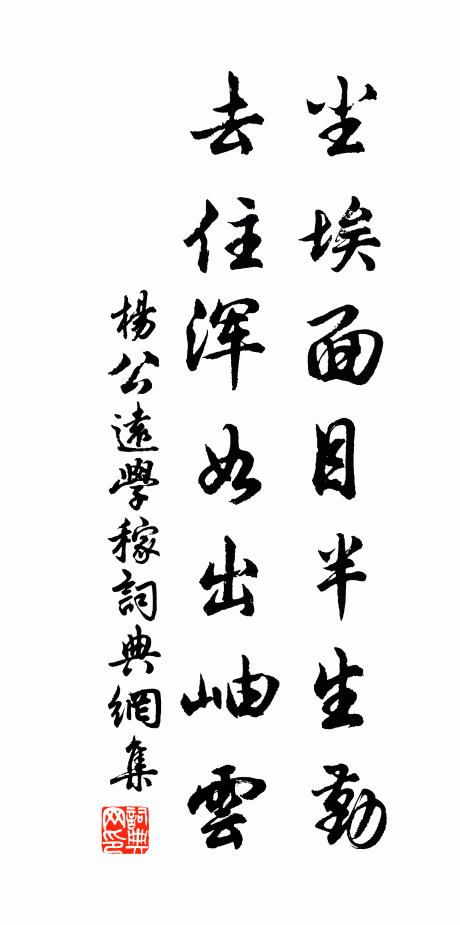 尘埃面目半生勤
去住浑如出岫雲
楊公遠學稼詞典網集
詞典网印